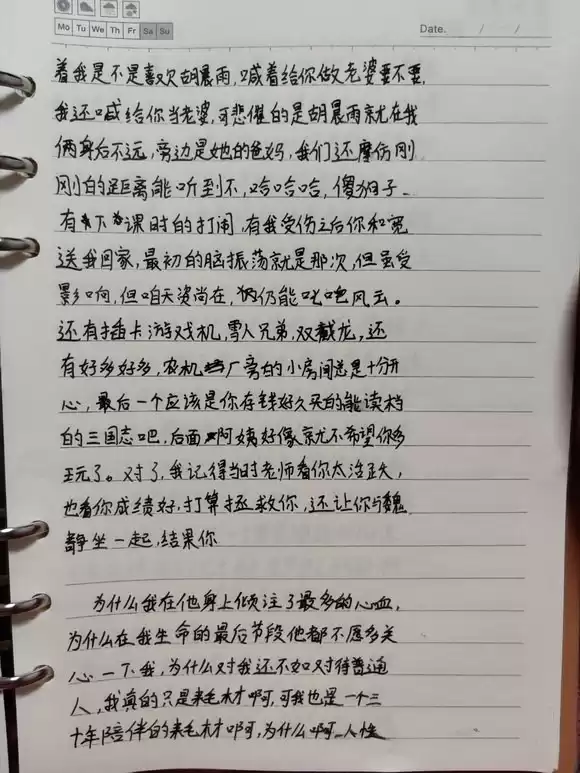 Mo Tu We Th Fr Sa Su
Date. / /
着我是不是喜欢胡晨雨,喊着给你做老婆要不要,
我还喊给你当老婆,可悲催的是胡晨雨就在我
俩身后不远,旁边是她的爸妈,我们还摩仿刚
刚的距离能听到不,哈哈哈,傻狍子。
有下课时的打闹,有我受伤之后你和宽
送我回家,最初的脑振荡就是那次,但虽受
影响,但咱天姿尚在,仍能叱咤风云。
还有插卡游戏机,雪人兄弟,双截龙,还
有好多好多,农机厂旁的小房间总是十分开
心,最后一个应该是你存钱好久买的能读档
的三国志吧,后面阿姨好像就不希望你多
玩了。对了,我记得当时老师看你太活跃,
也看你成绩好,打算拯救你,还让你与魏
静坐一起,结果你
为什么我在他身上倾注了最多的心血,
为什么在我生命的最后节段他都不愿多关
心一下我,为什么对我还不如对待普通
人,我真的只是耗材啊,可我也是一个三
十年陪伴的耗材啊,为什么啊,人性